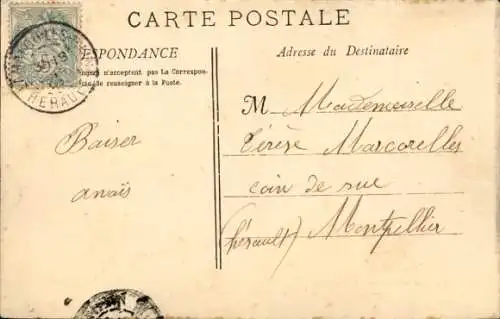 CARTE POSTALE
RESPONDANCE
n'acceptent pas La Correspon-
renseigner à la Poste.
Adresse du Destinataire
HERAULT
Baiser
anaïs
M Mademoiselle
Térèse Marcorelles
coin de rue
(hérault) Montpellier